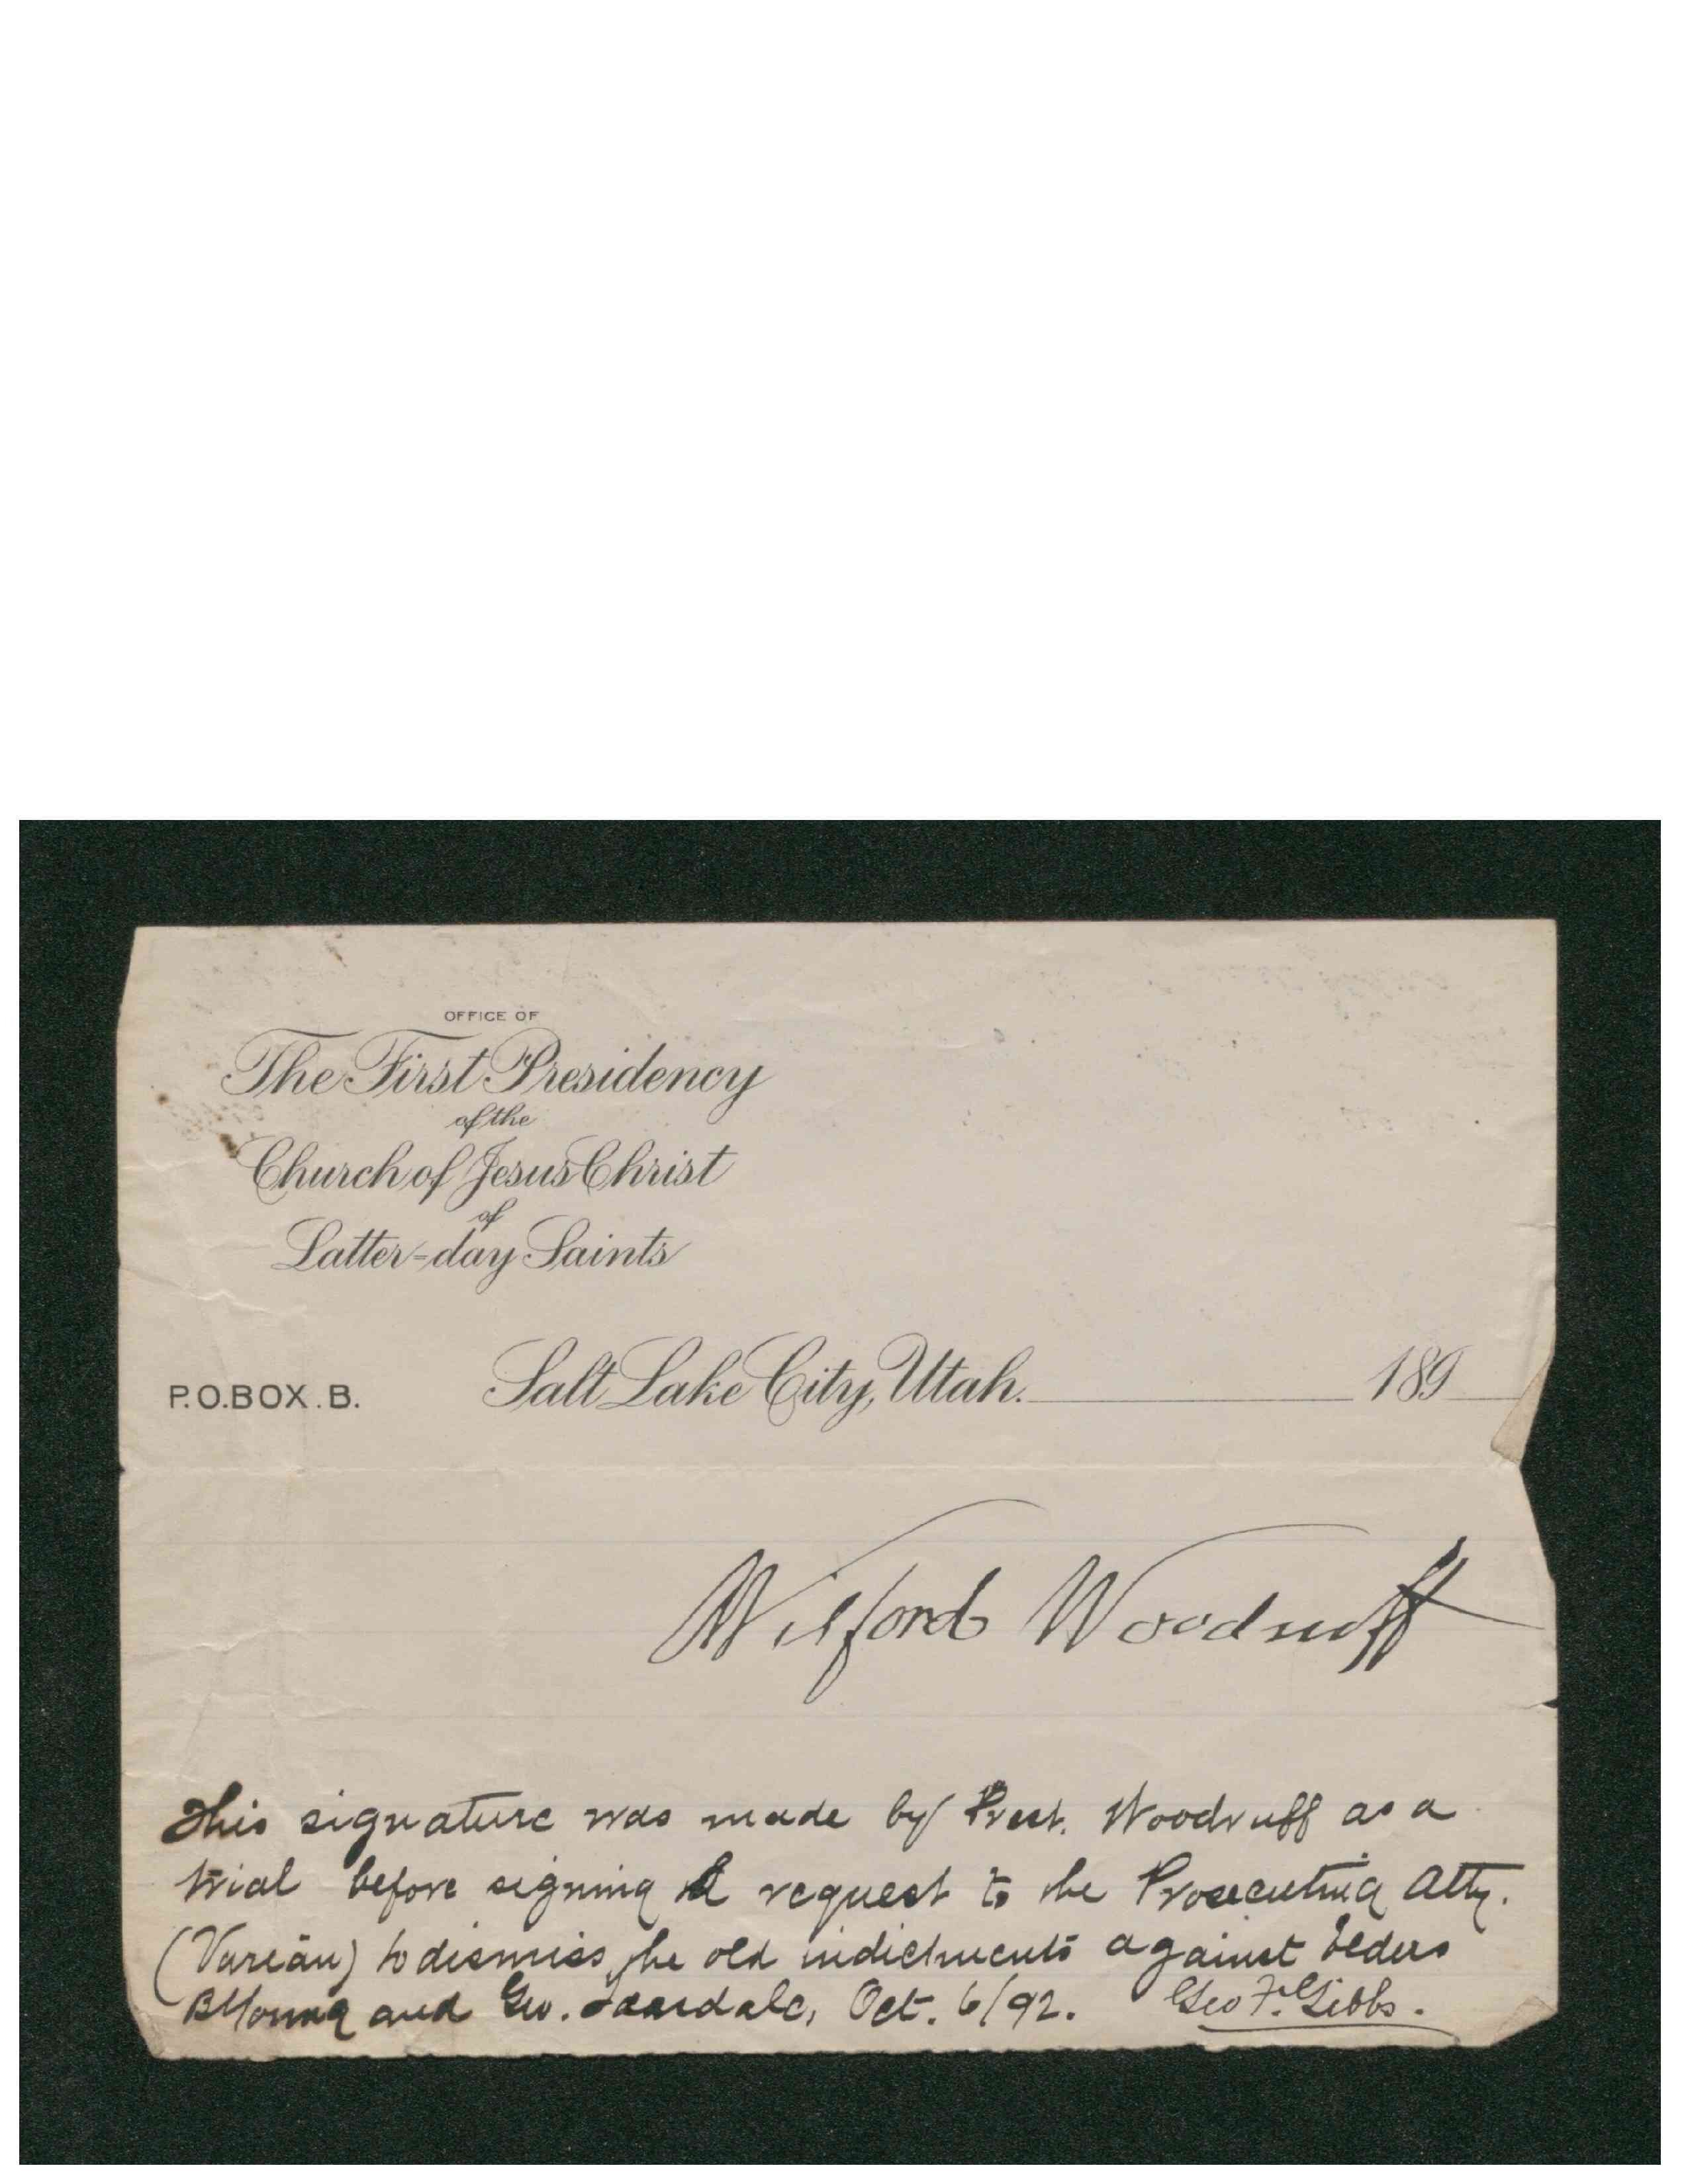 OFFICE OF
The First Presidency
of the
Church of Jesus Christ
of
Latter-day Saints
P.O. BOX. B.
Salt Lake City, Utah. 189
Wilford Woodruff
This signature was made by Prest. Woodruff as a
trial before signing a request to the Prosecuting Atty.
(Varian) to dismiss the old indictments against Elders
B Young and Geo. Teasdale, Oct. 6/92. Geo F. Gibbs.